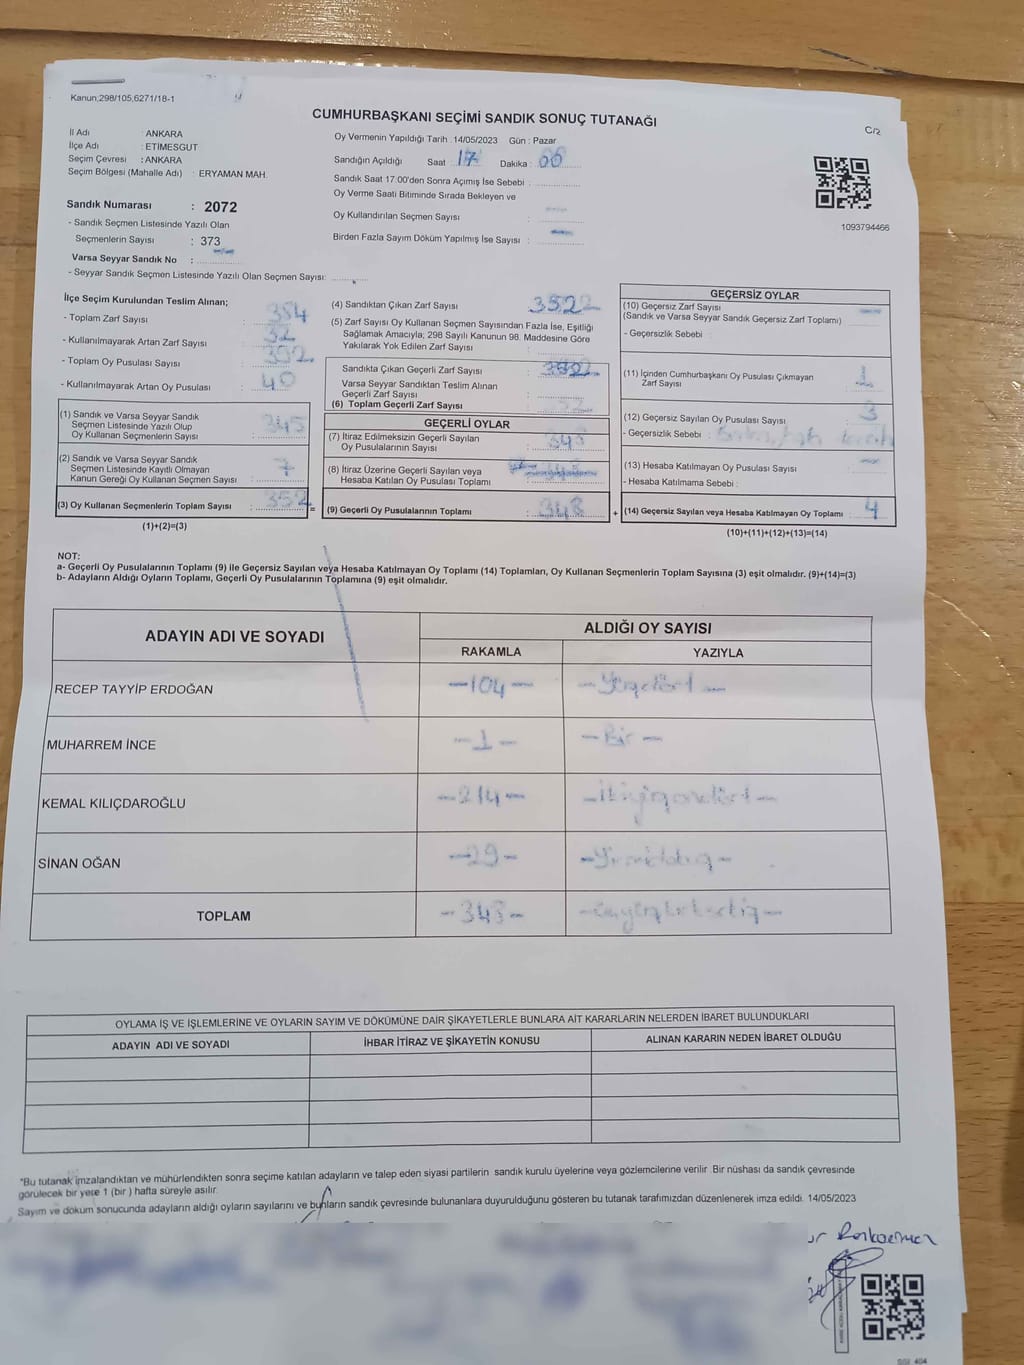 Kanun,298/105,6271/18-1
CUMHURBAŞKANI SEÇİMİ SANDIK SONUÇ TUTANAĞI
C/2
İl Adı : ANKARA
İlçe Adı : ETİMESGUT
Seçim Çevresi : ANKARA
Seçim Bölgesi (Mahalle Adı) : ERYAMAN MAH.
Oy Vermenin Yapıldığı Tarih : 14/05/2023 Gün : Pazar
Sandığın Açıldığı Saat : 17 Dakika : 00
Sandık Saat 17:00'den Sonra Açımış İse Sebebi :
Oy Verme Saati Bitiminde Sırada Bekleyen ve
Oy Kullandırılan Seçmen Sayısı :
Birden Fazla Sayım Döküm Yapılmış İse Sayısı :
1093794466
Sandık Numarası : 2072
- Sandık Seçmen Listesinde Yazılı Olan
Seçmenlerin Sayısı : 373
Varsa Seyyar Sandık No :
- Seyyar Sandık Seçmen Listesinde Yazılı Olan Seçmen Sayısı:
İlçe Seçim Kurulundan Teslim Alınan;
- Toplam Zarf Sayısı : 384
- Kullanılmayarak Artan Zarf Sayısı : 32
- Toplam Oy Pusulası Sayısı : 392
- Kullanılmayarak Artan Oy Pusulası : 40
(1) Sandık ve Varsa Seyyar Sandık
Seçmen Listesinde Yazılı Olup
Oy Kullanan Seçmenlerin Sayısı : 345
(2) Sandık ve Varsa Seyyar Sandık
Seçmen Listesinde Kayıtlı Olmayan
Kanun Gereği Oy Kullanan Seçmen Sayısı : 7
(3) Oy Kullanan Seçmenlerin Toplam Sayısı : 352
(1)+(2)=(3)
=
(4) Sandıktan Çıkan Zarf Sayısı : 352
(5) Zarf Sayısı Oy Kullanan Seçmen Sayısından Fazla İse, Eşitliği
Sağlamak Amacıyla; 298 Sayılı Kanunun 98. Maddesine Göre
Yakılarak Yok Edilen Zarf Sayısı :
Sandıkta Çıkan Geçerli Zarf Sayısı : 352
Varsa Seyyar Sandıktan Teslim Alınan
Geçerli Zarf Sayısı :
(6) Toplam Geçerli Zarf Sayısı :
GEÇERLİ OYLAR
(7) İtiraz Edilmeksizin Geçerli Sayılan
Oy Pusulalarının Sayısı : 348
(8) İtiraz Üzerine Geçerli Sayılan veya
Hesaba Katılan Oy Pusulası Toplamı :
(9) Geçerli Oy Pusulalarının Toplamı : 348
+
GEÇERSİZ OYLAR
(10) Geçersiz Zarf Sayısı
(Sandık ve Varsa Seyyar Sandık Geçersiz Zarf Toplamı)
- Geçersizlik Sebebi :
(11) İçinden Cumhurbaşkanı Oy Pusulası Çıkmayan
Zarf Sayısı : 1
(12) Geçersiz Sayılan Oy Pusulası Sayısı : 3
- Geçersizlik Sebebi :
(13) Hesaba Katılmayan Oy Pusulası Sayısı :
- Hesaba Katılmama Sebebi :
(14) Geçersiz Sayılan veya Hesaba Katılmayan Oy Toplamı : 4
(10)+(11)+(12)+(13)=(14)
NOT:
a- Geçerli Oy Pusulalarının Toplamı (9) ile Geçersiz Sayılan veya Hesaba Katılmayan Oy Toplamı (14) Toplamları, Oy Kullanan Seçmenlerin Toplam Sayısına (3) eşit olmalıdır. (9)+(14)=(3)
b- Adayların Aldığı Oyların Toplamı, Geçerli Oy Pusulalarının Toplamına (9) eşit olmalıdır.
ADAYIN ADI VE SOYADI
ALDIĞI OY SAYISI
RAKAMLA YAZIYLA
RECEP TAYYİP ERDOĞAN -104- -Yüzdört-
MUHARREM İNCE -1- -Bir-
KEMAL KILIÇDAROĞLU -214- -İkiyüzondört-
SİNAN OĞAN -29- -Yirmidokuz-
TOPLAM -348- -üçyüzkırksekiz-
OYLAMA İŞ VE İŞLEMLERİNE VE OYLARIN SAYIM VE DÖKÜMÜNE DAİR ŞİKAYETLERLE BUNLARA AİT KARARLARIN NELERDEN İBARET BULUNDUKLARI
ADAYIN ADI VE SOYADI İHBAR İTİRAZ VE ŞİKAYETİN KONUSU ALINAN KARARIN NEDEN İBARET OLDUĞU
"Bu tutanak imzalandıktan ve mühürlendikten sonra seçime katılan adayların ve talep eden siyasi partilerin sandık kurulu üyelerine veya gözlemcilerine verilir. Bir nüshası da sandık çevresinde
görülecek bir yere 1 (bir) hafta süreyle asılır.
Sayım ve döküm sonucunda adayların aldığı oyların sayılarını ve bunların sandık çevresinde bulunanlara duyurulduğunu gösteren bu tutanak tarafımızdan düzenlenerek imza edildi. 14/05/2023